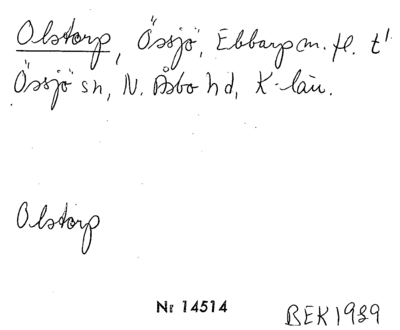 Olstorp, Össjö, Ebbarp m. fl. t'
Össjö sn, N. Åsbo hd, K-län.
Olstorp
Nr 14514
BEK 1989